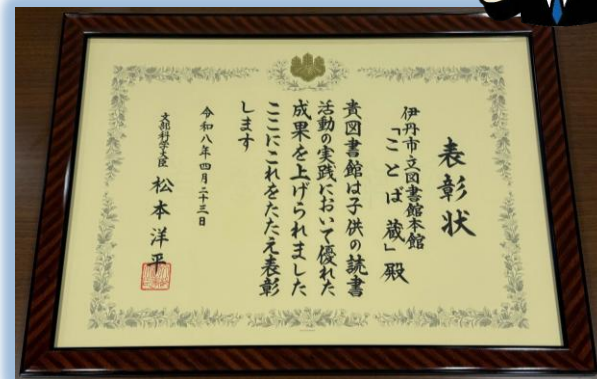 表彰状
伊丹市立図書館本館
「ことば蔵」殿
貴図書館は子供の読書
活動の実践において優れた
成果を上げられました
ここにこれをたたえ表彰
します
令和八年四月二十三日
文部科学大臣 松本洋平